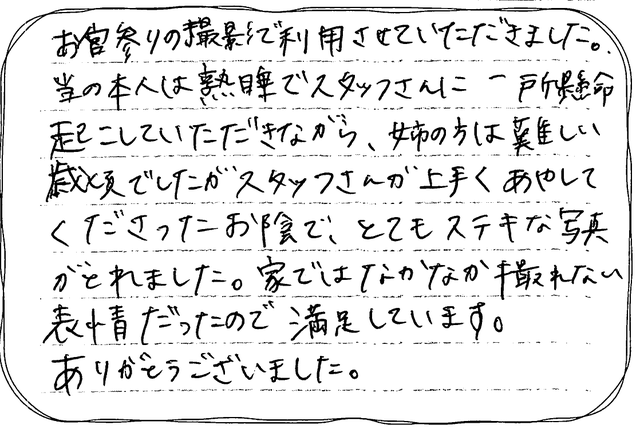 お宮参りの撮影で利用させていただきました。
当の本人は熟睡でスタッフさんに一所懸命
起こしていただきながら、姉の方は難しい
歳頃でしたがスタッフさんが上手くあやして
くださったお陰で、とてもステキな写真
がとれました。家ではなかなか撮れない
表情だったので満足しています。
ありがとうございました。